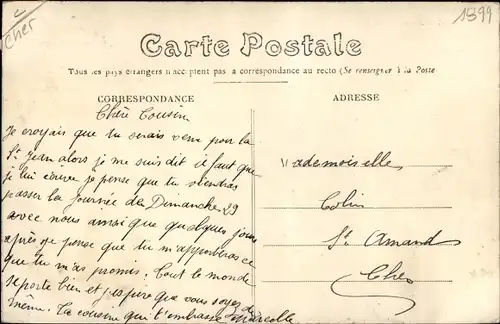 Cher
1399
Carte Postale
Tous les pays étrangers n'acceptent pas la correspondance au recto (Se renseigner à la Poste
CORRESPONDANCE
ADRESSE
Chère Cousine
Je croyais que tu serais venu pour la
St Jean alors je me suis dit il faut que
je lui écrive je pense que tu viendras
passer la Journée de Dimanche 29
avec nous ainsi que quelques jours
après je pense que tu m'apporteras ce
que tu m'as promis. Tout le monde
se porte bien et j'espère que vous soyez de
même. Ta cousine qui t'embrasse Marcelle
Mademoiselle
Colin
St Amand
Cher